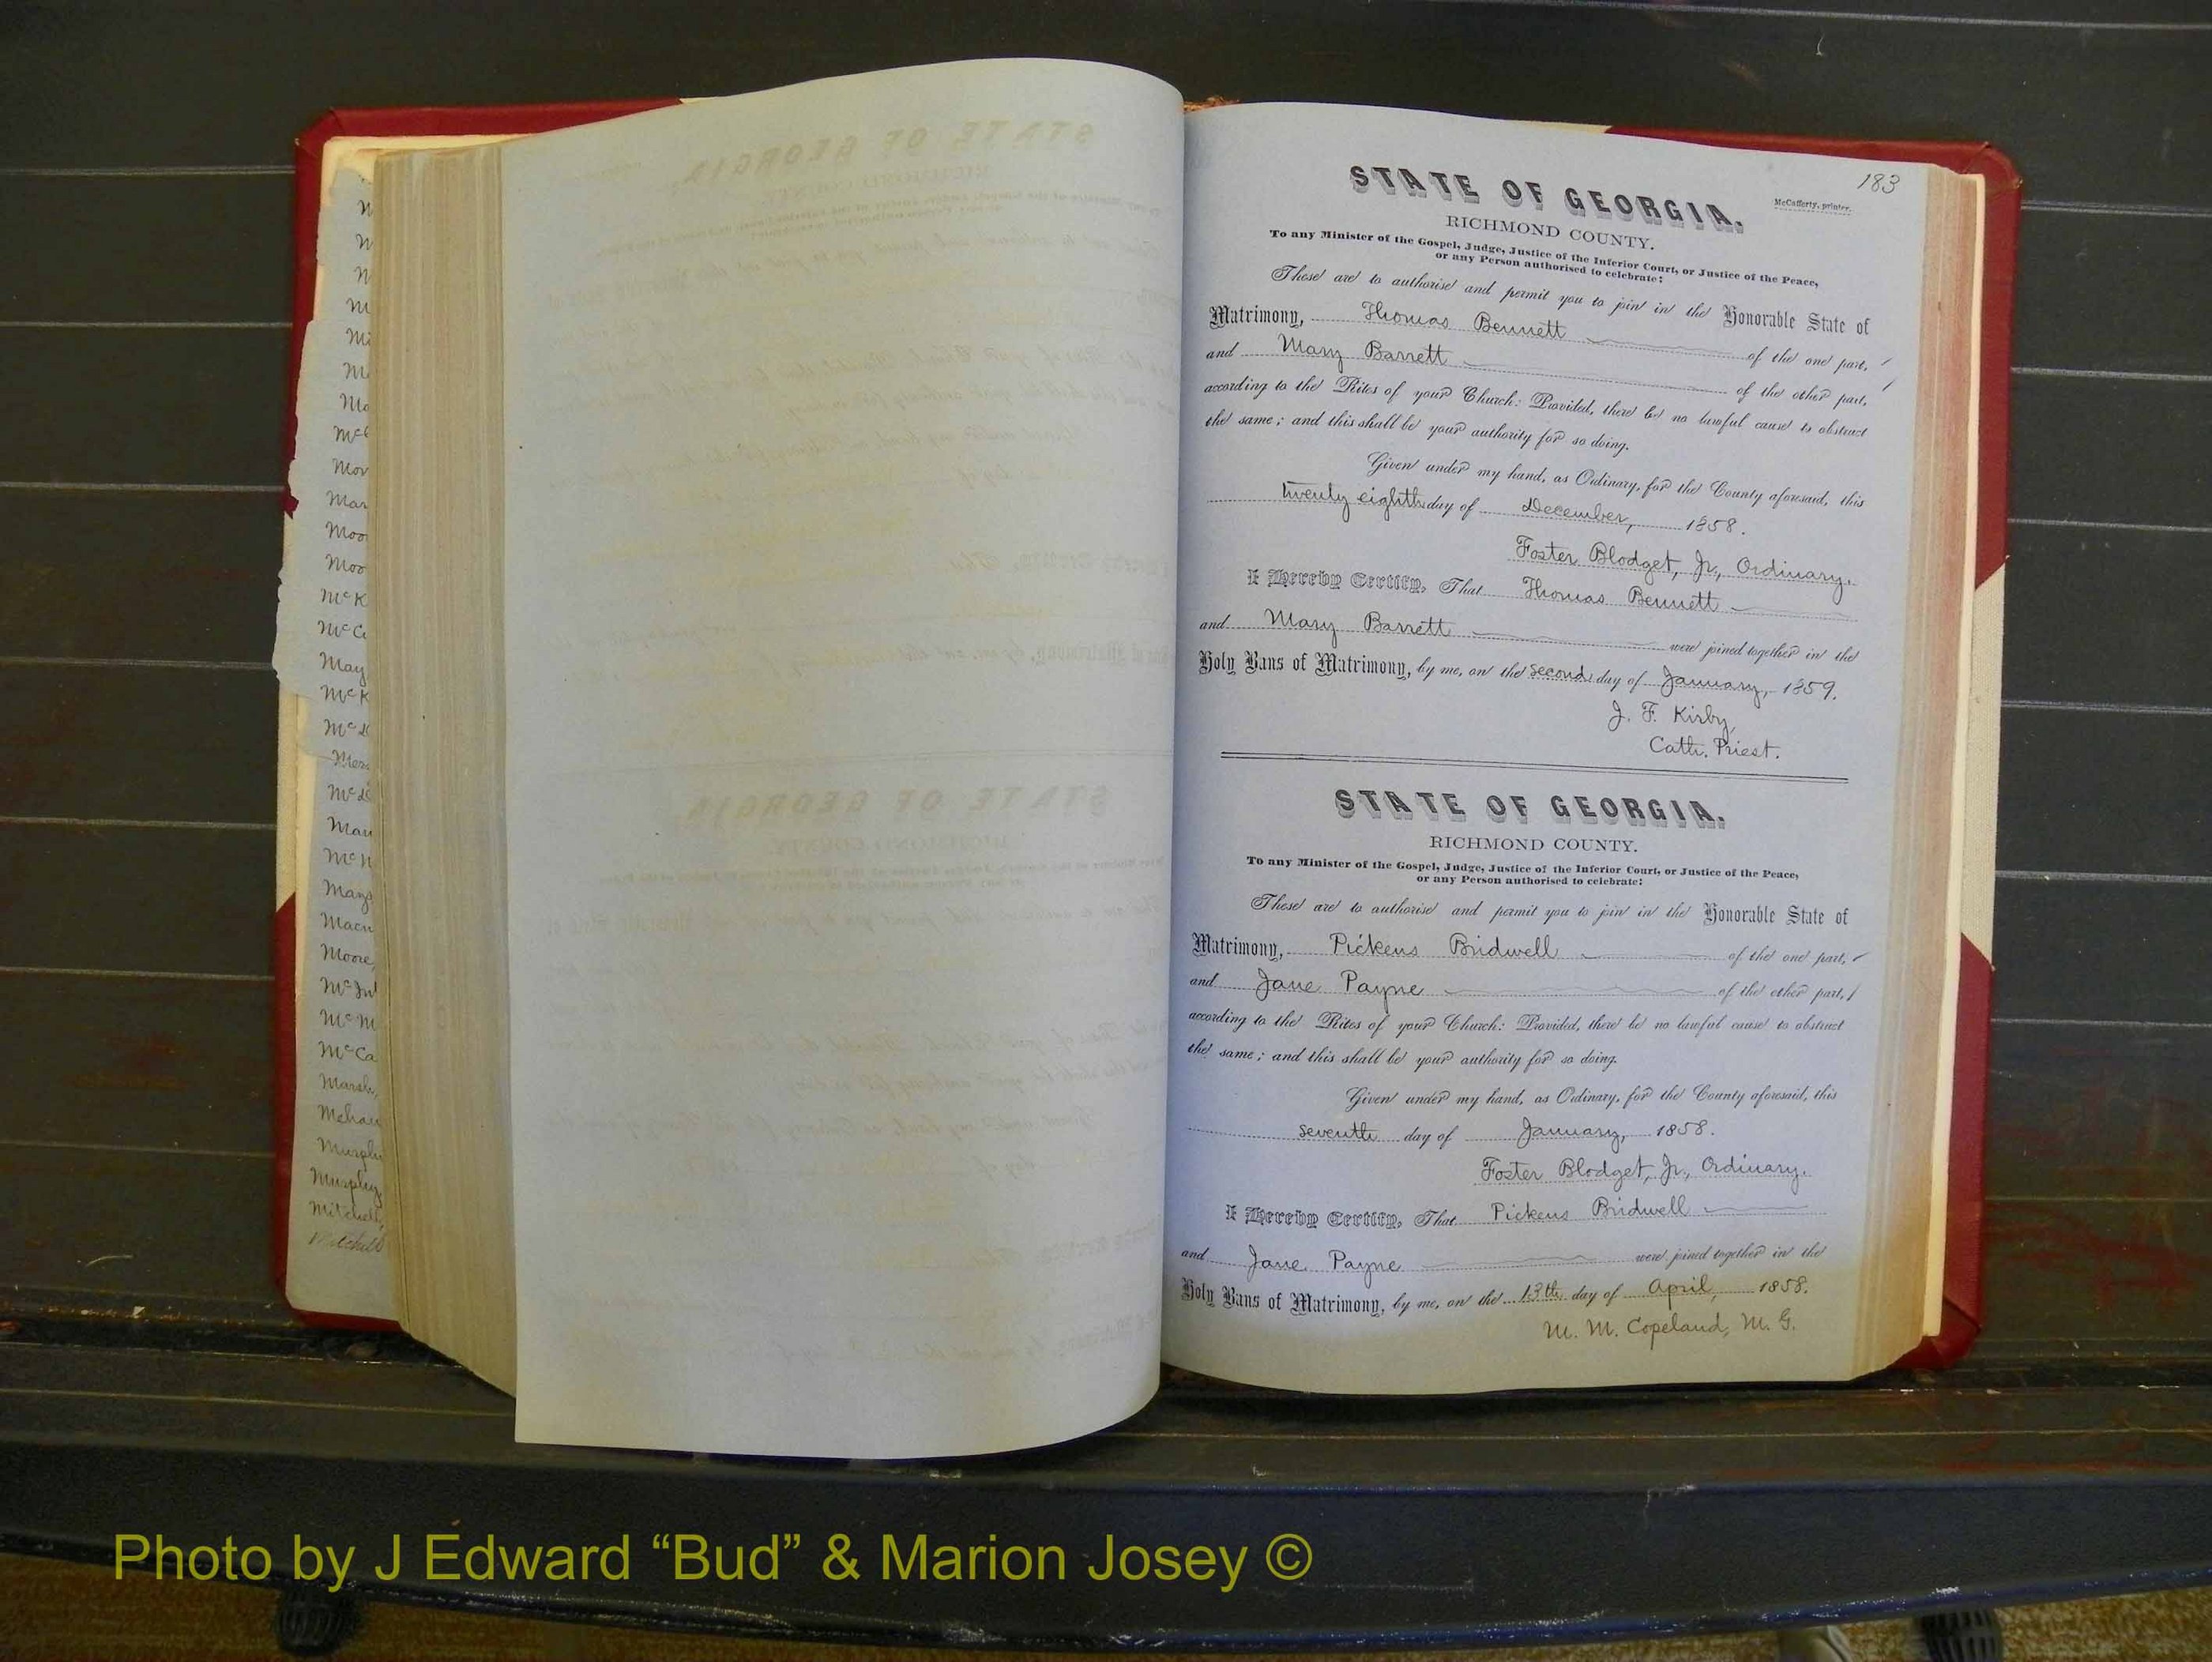 183
STATE OF GEORGIA.
McCafferty, printer.
RICHMOND COUNTY.
To any Minister of the Gospel, Judge, Justice of the Inferior Court, or Justice of the Peace,
or any Person authorised to celebrate:
These are to authorise and permit you to join in the Honorable State of
Matrimony, Thomas Bennett of the one part,
and Mary Barrett of the other part,
according to the Rites of your Church: Provided, there be no lawful cause to obstruct
the same; and this shall be your authority for so doing.
Given under my hand, as Ordinary, for the County aforesaid, this
twenty eighth day of December, 1858.
Foster Blodget, Jr., Ordinary.
I Hereby Certify, That Thomas Bennett
and Mary Barrett were joined together in the
Holy Bans of Matrimony, by me, on the second day of January, 1859.
J. F. Kirby,
Cath. Priest.
STATE OF GEORGIA.
RICHMOND COUNTY.
To any Minister of the Gospel, Judge, Justice of the Inferior Court, or Justice of the Peace,
or any Person authorised to celebrate:
These are to authorise and permit you to join in the Honorable State of
Matrimony, Pickens Bridwell of the one part,
and Jane Payne of the other part,
according to the Rites of your Church: Provided, there be no lawful cause to obstruct
the same; and this shall be your authority for so doing.
Given under my hand, as Ordinary, for the County aforesaid, this
seventh day of January, 1858.
Foster Blodget, Jr., Ordinary.
I Hereby Certify, That Pickens Bridwell
and Jane Payne were joined together in the
Holy Bans of Matrimony, by me, on the 13th day of April, 1858.
M. M. Copeland, M. G.
Photo by J Edward “Bud” & Marion Josey ©